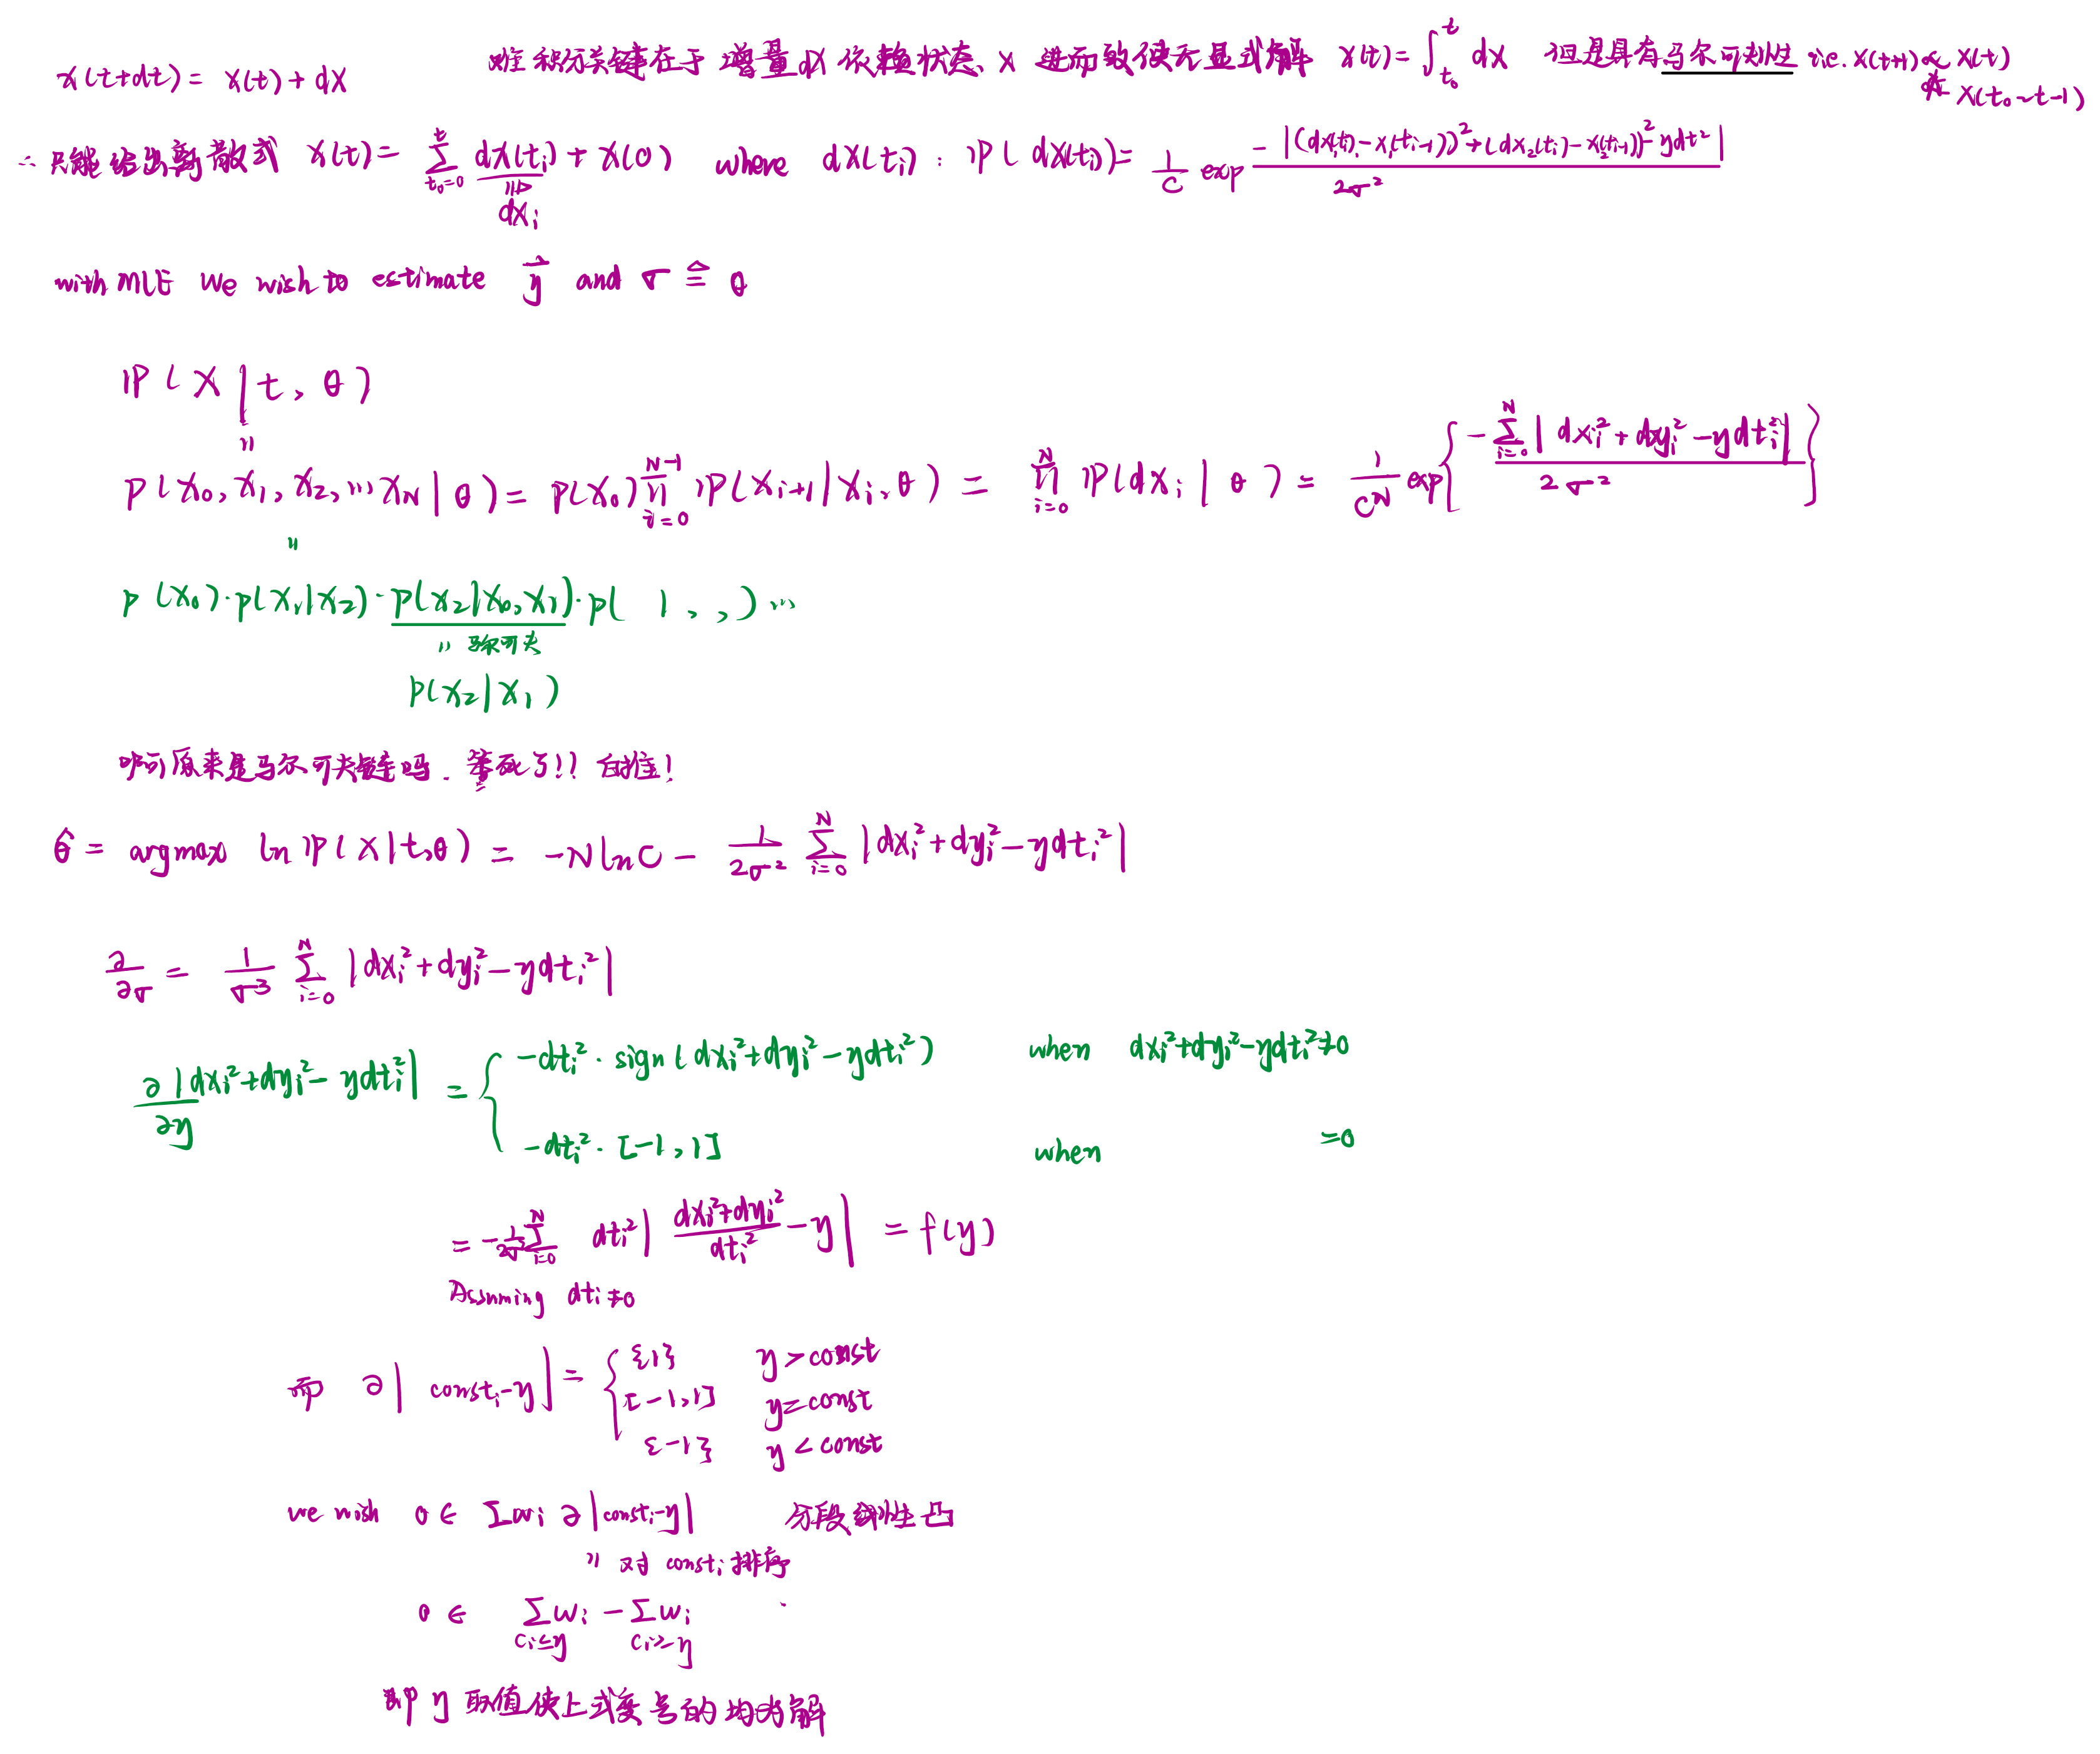 x(t+dt) = x(t) + dX 难积分关键在于增量dX依赖状态、X 进而致使无显式解 X(t) = ∫_{t₀}^{t} dX 但是具有马尔可夫性 i.e. X(t+1) ∝ X(t)
X(t₀~t-1)
∴ 只能给出离散式 X(t) = Σ_{t₀=0}^{t} dX(t_i) + X(0) where dX(t_i) : ℙ(dX(t_i)) = 1/C exp -|(dX₁(t_i)-X₁(t_{i-1}))² + (dX₂(t_i)-X₂(t_{i-1}))² - ηdt²| / 2σ²
dX_i
with MLE we wish to estimate η and σ ≙ θ
ℙ(X | t, θ)
"
P(X₀, X₁, X₂, ... X_N | θ) = P(X₀) Π_{i=0}^{N-1} ℙ(X_{i+1} | X_i, θ) = Π_{i=0}^{N} ℙ(dX_i | θ) = 1/C^N exp{ -Σ_{i=0}^{N} |dx_i² + dy_i² - ηdt_i²| / 2σ² }
"
P(X₀)·P(X₁|X₂)·P(X₂|X₀,X₁)·P( | , , ) ...
" 马尔可夫
P(X₂|X₁)
啊可原来是马尔可夫链吗. 笨死了!! 白推!
θ̂ = argmax ln ℙ(X|t,θ) = -N ln C - 1/2σ² Σ_{i=0}^{N} |dx_i² + dy_i² - ηdt_i²|
∂/∂σ = 1/σ³ Σ_{i=0}^{N} |dx_i² + dy_i² - ηdt_i²|
∂|dx_i² + dy_i² - ηdt_i²| / ∂η = { -dt_i² · sign(dx_i² + dy_i² - ηdt_i²) when dx_i² + dy_i² - ηdt_i² ≠ 0
-dt_i² · [-1, 1] when =0
= -1/2σ² Σ_{i=0}^{N} dt_i² | (dx_i² + dy_i²)/dt_i² - η | = f(η)
Assuming dt_i ≠ 0
而 ∂| const_i - η | = { {1} η > const
[-1, 1] η = const
{-1} η < const
we wish 0 ∈ Σ w_i ∂|const_i - η| 分段线性凸
" 对 const_i 排序
0 ∈ Σ_{c_i ≤ η} w_i - Σ_{c_i ≥ η} w_i
即 η 取值使上式变号的均为解